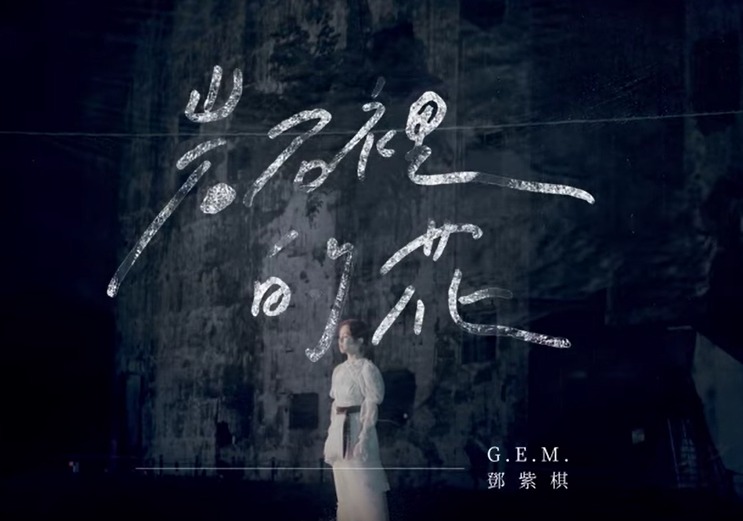 岩石裡
的花
G.E.M.
鄧紫棋